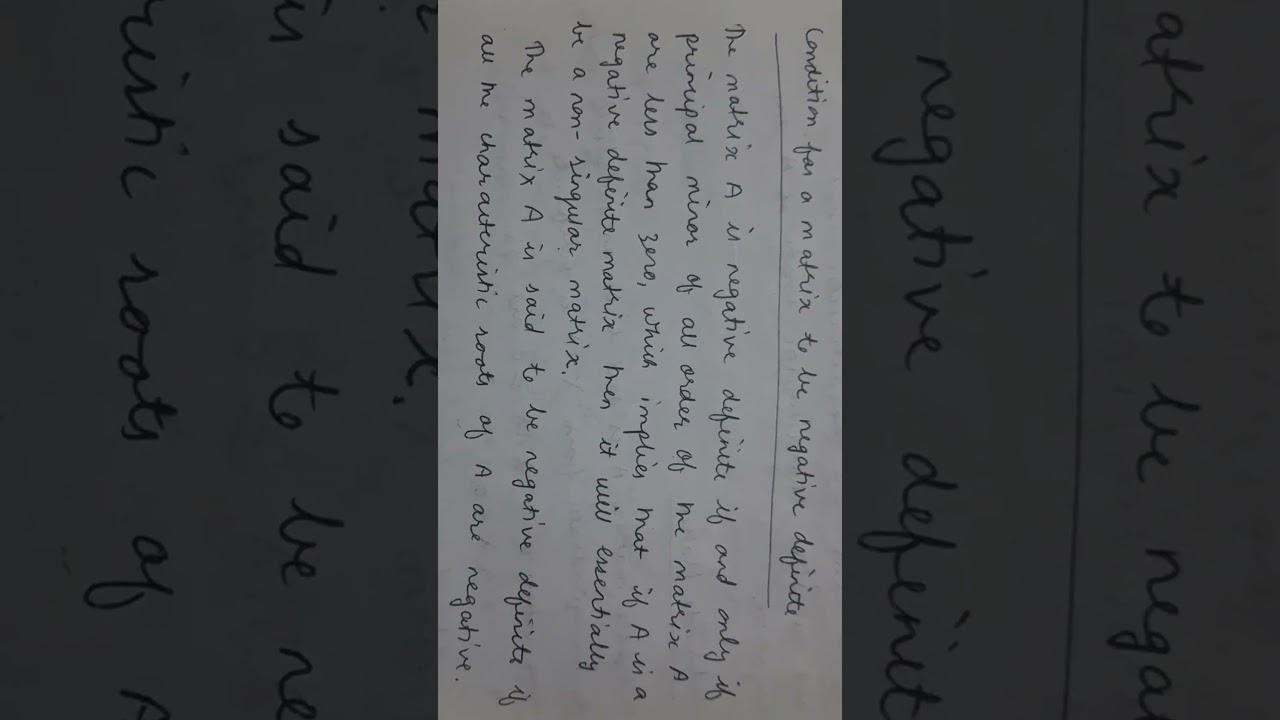 Condition for a matrix to be negative definite
The matrix A is negative definite if and only if
principal minor of all order of the matrix A
are less than zero, which implies that if A is a
negative definite matrix then it will essentially
be a non-singular matrix.
The matrix A is said to be negative definite if
all the characteristic roots of A are negative.